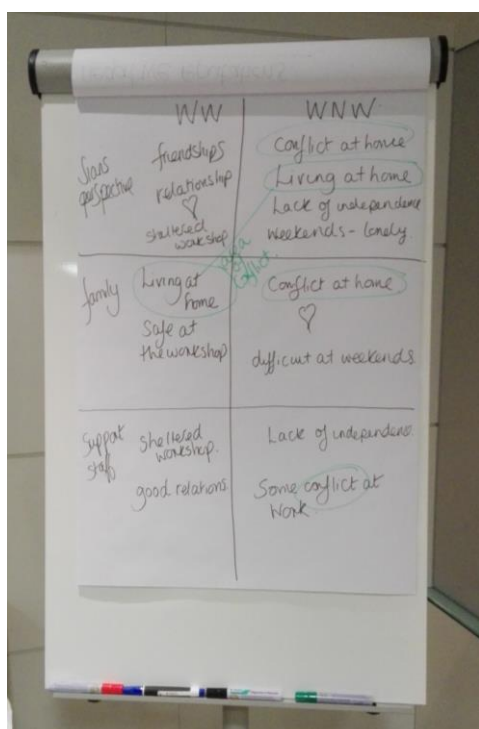 WW
WNW
Sians perspective
friendships
relationship
♡
sheltered
workshop
Conflict at home
Living at home
Lack of independence
weekends - lonely.
family
Living at
home
Safe at
the workshop
Conflict at home
♡
difficult at weekends
Support
staff
sheltered
workshop.
good relations
Lack of independence.
Some conflict at
work
conflict